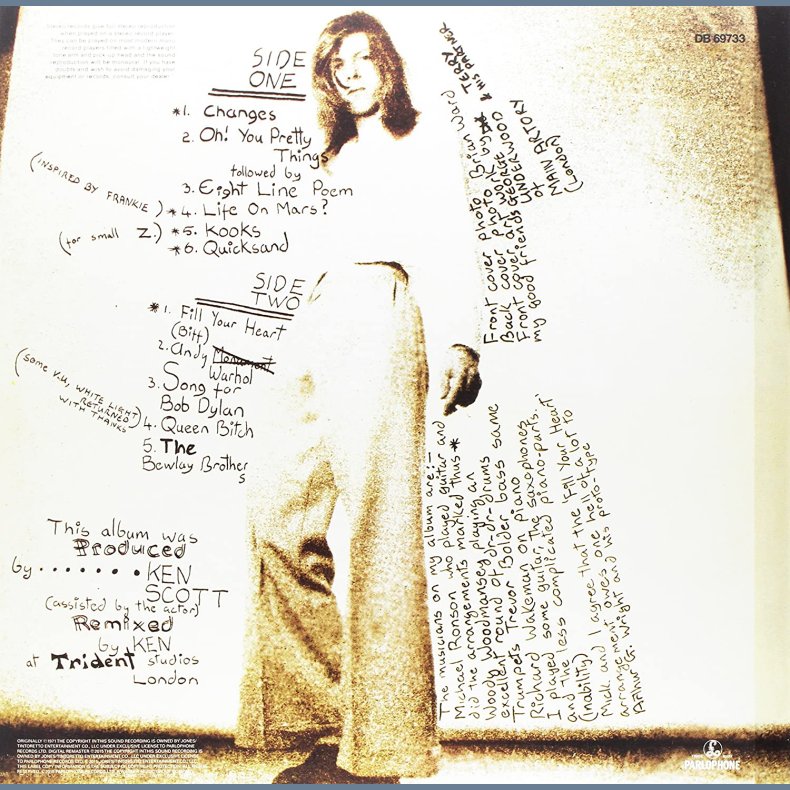 Stereo records give full stereo reproduction
when played on a stereo record player.
They can be played on most modern mono
record players fitted with a lightweight
tone arm and pick up head and the sound
reproduction will be monaural. If you have
doubts and wish to avoid damaging your
equipment or records, consult your dealer.
DB 69733
SIDE
ONE
*1. Changes
2. Oh! You Pretty
Things
followed by
3. Eight Line Poem
(INSPIRED BY FRANKIE) *4. Life On Mars?
(for small Z.) *5. Kooks
*6. Quicksand
SIDE
TWO
*1. Fill Your Heart
(Biff)
2. Andy
Warhol
3. Song for
Bob Dylan
(Some V.U, WHITE LIGHT
RETURNED
WITH THANKS)
4. Queen Bitch
5. The
Bewlay Brothers
This album was
Produced
by ....... KEN
SCOTT
(assisted by the actor)
Remixed
by KEN
at Trident studios
London
Front cover photo Brian Ward
Back cover photo
Front cover art work by & TERRY
& HIS PARTNER
my good friends GEORGE UNDERWOOD
of
MAIN ARTORY
(London)
The musicians on my album are:-
Michael Ronson who played guitar and
did the arrangements marked thus *
Woody Woodmansey playing an
excellent round of dr-dr-drums
Trumpets Trevor Bolder bass same
Richard Wakeman on piano
I played some guitar, the saxophones
and the less complicated piano-parts.
(inability)
Mick and I agree that the 'Fill Your Heart'
arrangement owes one hell of a lot to
Arthur G. Wright and his proto-type
ORIGINALLY ℗ 1971 THE COPYRIGHT IN THIS SOUND RECORDING IS OWNED BY JONES/
TINTORETTO ENTERTAINMENT CO., LLC UNDER EXCLUSIVE LICENSE TO PARLOPHONE
RECORDS LTD. DIGITAL REMASTER ℗ 2015 THE COPYRIGHT IN THIS SOUND RECORDING IS
OWNED BY JONES/TINTORETTO ENTERTAINMENT CO., LLC UNDER EXCLUSIVE LICENSE
TO PARLOPHONE RECORDS LTD.
PARLOPHONE